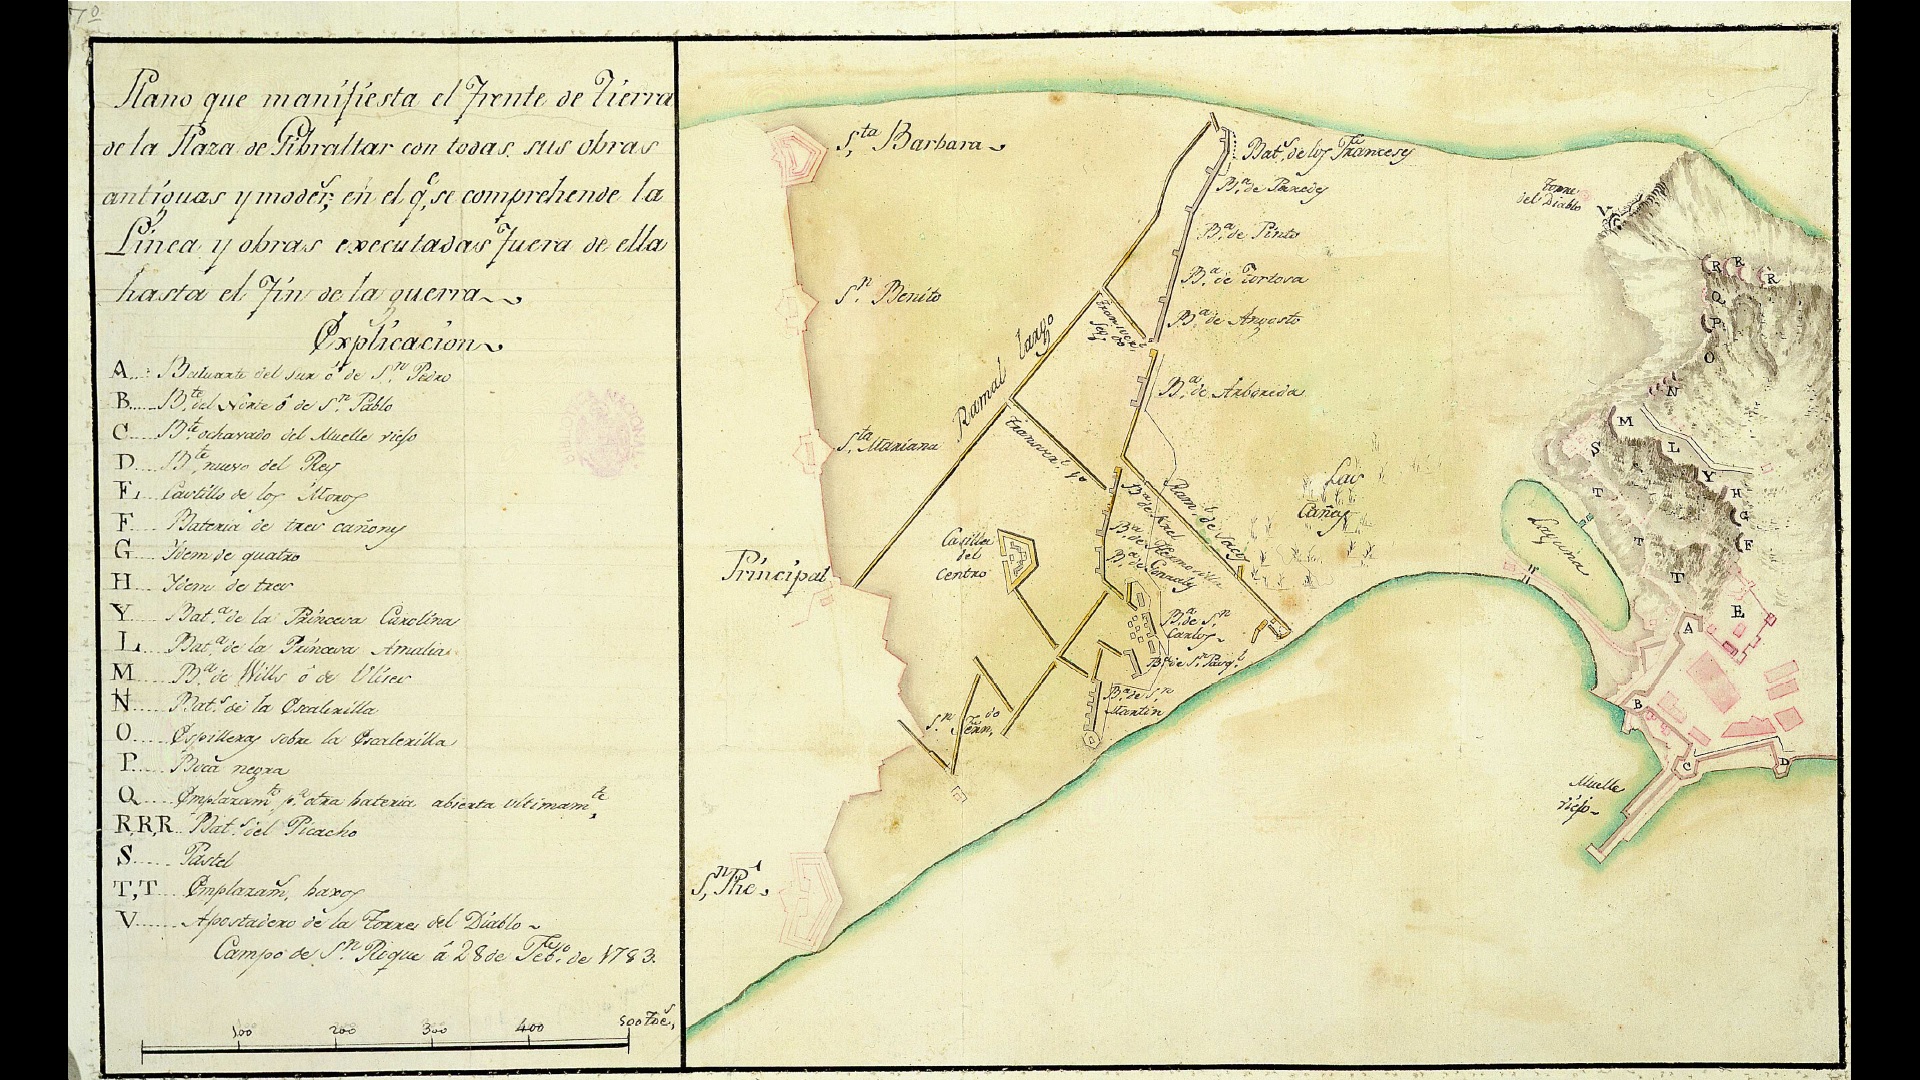 Plano que manifiesta el Frente de Tierra
de la Plaza de Gibraltar con todas sus obras
antiguas y moder.s en el q.e se comprehende la
Linea y obras executadas Fuera de ella
hasta el Fin de la guerra
Explicacion
A Baluarte del sur ó de S.n Pedro
B B.te del Norte ó de S.n Pablo
C B.te ochavado del Muelle viejo
D B.te nuevo del Rey
E Castillo de los Moros
F Bateria de tres cañones
G Ydem de quatro
H Ydem de tres
Y Bat.a de la Princesa Carolina
L Bat.a de la Princesa Amalia
M B.a de Wills ó de Ulises
N Bat.s de la Escalerilla
O Espilleras sobre la Escalerilla
P Boca negra
Q Emplazam.to p.a otra bateria abierta ultimam.te
R,R,R Bat.s del Picacho
S Pastel
T,T Emplazam.s baxos
V Apostadero de la Torre del Diablo
Campo de S.n Roque á 28 de Feb.o de 1783.
100 200 300 400 500 Toe.s
S.ta Barbara
S.n Benito
S.ta Mariana
Principal
S.n Phe.
Ramal largo
Bat.s de los Franceses
B.a de Paredes
B.a de Pinto
B.a de Tortosa
B.a de Angosto
B.a de Arboreda
Transver.l
Transversal
Casilla
del
Centro
Las
Cañas
B.a de S.n
Carlos
B.a de S.n Pasq.l
B.a de S.n
Martin
S.n Fern.do
Torre
del Diablo
V
R R R
Q
P
O
N
M
L
Y
H
G
F
S
T
T
T
E
A
B
C
D
Laguna
Muelle
viejo